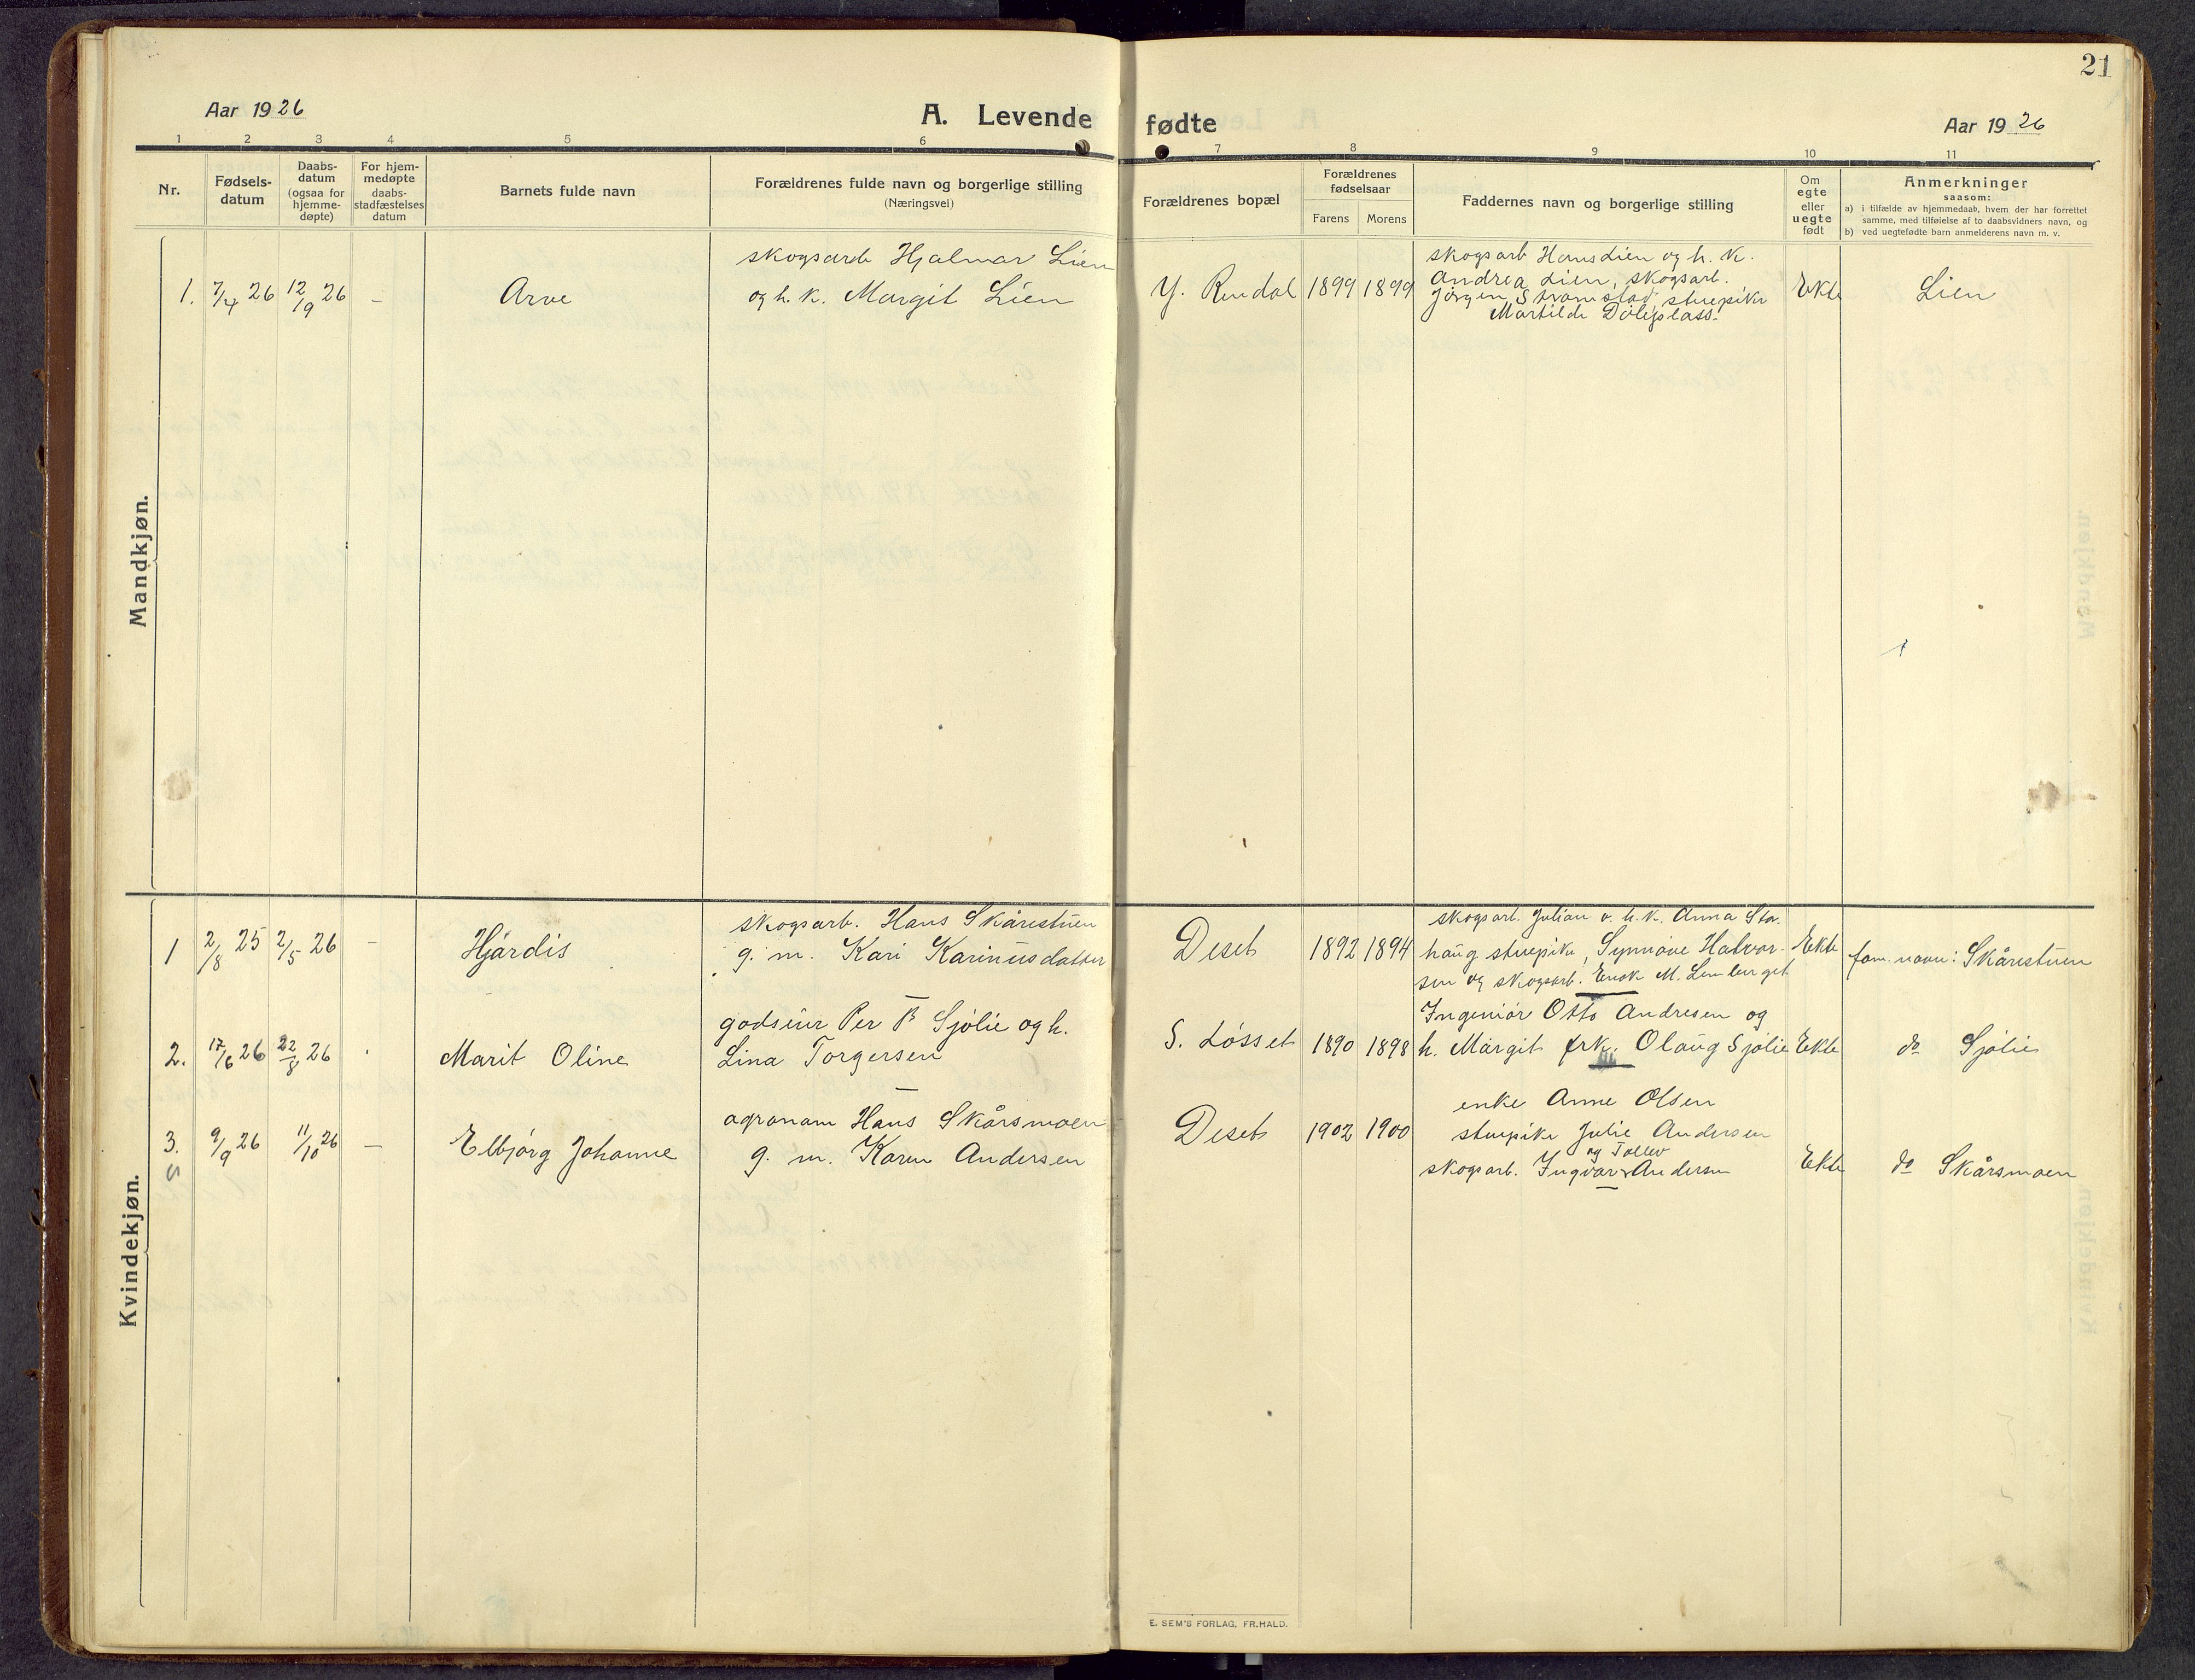 21
Aar 1926
A. Levende fødte
Aar 1926
1 2 3 4 5 6 7 8 9 10 11
Nr.
Fødsels-
datum
Daabs-
datum
(ogsaa for
hjemme-
døpte)
For hjem-
medøpte
daabs-
stadfæstelses
datum
Barnets fulde navn
Forældrenes fulde navn og borgerlige stilling
(Næringsvei)
Forældrenes bopæl
Forældrenes
fødselsaar
Farens Morens
Faddernes navn og borgerlige stilling
Om
egte
eller
uegte
født
Anmerkninger
saasom:
a) i tilfælde av hjemmedaab, hvem der har forrettet
samme, med tilføielse af to daabsvidners navn, og
b) ved uegtefødte barn anmelderens navn m. v.
Mandkjøn.
1. 7/4 26 12/9 26 – Arve
skogsarb Hjalmar Lien
og h. k. Margit Lien
Y. Rendal 1899 1899
skogsarb Hans Lien og h. k.
Andrea Lien, skogsarb.
Jørgen Stramstad, stuepike
Martilde Døliplass.
Ekte Lien
Kvindekjøn.
1 2/8 25 2/5 26 – Hjördis
skogsarb. Hans Skårestuen
g. m. Kari Karinusdatter
Deset 1892 1894
skogsarb. Julian o. h. k. Anna Sta
haug stuepike, Synnøve Halvor-
sen og skogsarb. M.
Ekte fam. navn: Skårestuen
2. 17/6 26 22/8 26 Marit Oline
godseier Per P Sjölie og h.
Lina Torgersen
S. Løsset 1890 1898
Ingeniör Otto Andresen og
h. Margit frk. Olaug Sjölie
Ekte do Sjölie
3. 9/9 26 11/10 26 – Elbjörg Johanne
S
agronom Hans Skårsmoen
g. m. Karen Andersen
Deset 1902 1900
enke Anne Olsen
stuepike Julie Andersen
og Tollev
skogsarb. Ingvar Andersen
Ekte do Skårsmoen
E. SEM'S FORLAG, FR.HALD.